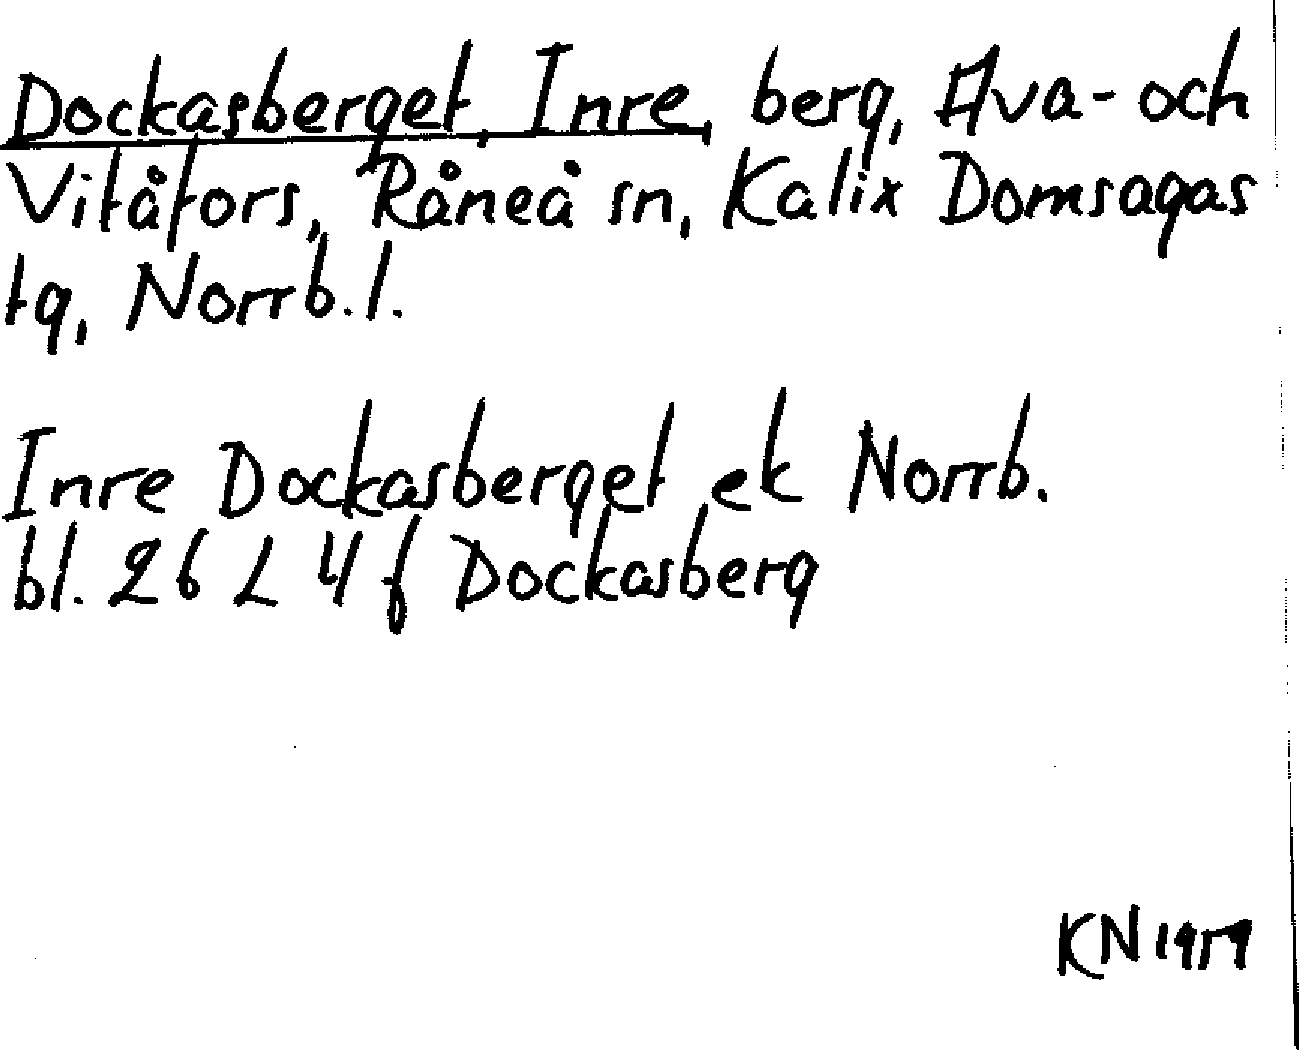 Dockasberget, Inre, berg, Ava- och
Vitåfors, Råneå sn, Kalix Domsagas
tg, Norrb. l.
Inre Dockasberget ek Norrb.
bl. 26 L 4 f Dockasberg
KN